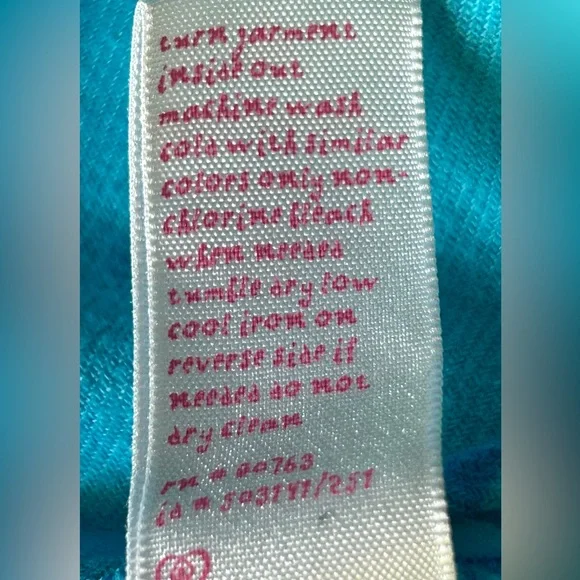 turn garment
inside out
machine wash
cold with similar
colors only non-
chlorine bleach
when needed
tumble dry low
cool iron on
reverse side if
needed do not
dry clean
rn #
id #